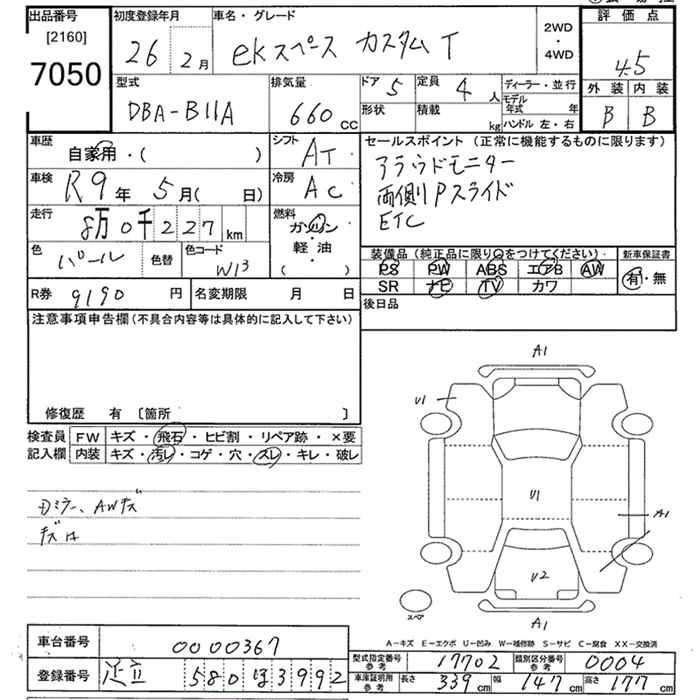 出品番号
[2160]
7050
初度登録年月
26 2月
車名・グレード
ekスペース カスタム T
2WD・4WD
評価点
4.5
外装 内装
B B
型式
DBA-B11A
排気量
660 CC
ドア 5
形状
定員 4 人
積載 kg
ディーラー・並行
モデル年式 年
ハンドル 左・右
車歴
自家用・( )
シフト AT
車検
R9年 5月( 日)
冷房 AC
走行
8万0千227 km
燃料
ガソリン・軽油
( )
色 パール
色替
色コード W13
R券 9190 円
名変期限 月 日
セールスポイント(正常に機能するものに限ります)
アラウドモニター
両側Pスライド
ETC
装備品(純正品に限り○をつけてください)
PS PW ABS エアB AW
SR ナビ TV カワ
新車保証書
有・無
後日品
注意事項申告欄(不具合内容等は具体的に記入して下さい)
修復歴 有 〔箇所 〕
検査員記入欄
FW キズ・飛石・ヒビ割・リペア跡・×要
内装 キズ・汚レ・コゲ・穴・スレ・キレ・破レ
ミラー、AWキズ
キズ
A1
U1
U1
A1
U2
A1
スペア
A-キズ E-エクボ U-凹み W-補修跡 S-サビ C-腐食 XX-交換済
車台番号 0000367
登録番号 足立 580 ほ 3992
型式指定番号 参考 17702
類別区分番号 参考 0004
車庫証明用 参考 長さ 339 cm 幅 147 cm 高さ 177 cm